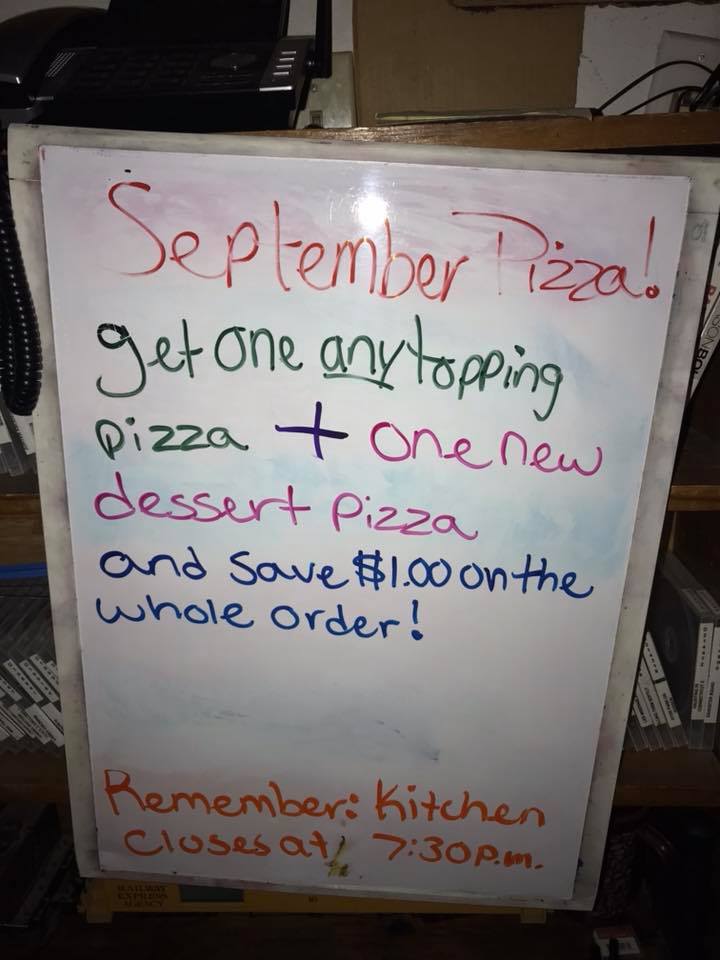 September Pizza!
get one any topping
pizza + one new
dessert pizza
and save $1.00 on the
whole order!
Remember: Kitchen
closes at 7:30p.m.
RAILWAY
EXPRESS
AGENCY